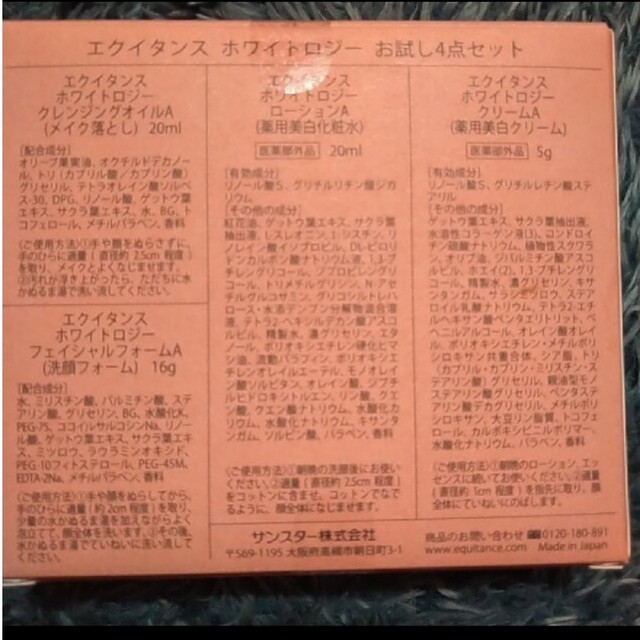 エクイタンス ホワイトロジー お試し4点セット
エクイタンス
ホワイトロジー
クレンジングオイルA
(メイク落とし) 20ml
[配合成分]
オリーブ果実油、オクチルドデカノー
ル、トリ(カプリル酸/カプリン酸)
グリセリル、テトラオレイン酸ソルベ
ス-30、DPG、リノール酸、ゲットウ葉
エキス、サクラ葉エキス、水、BG、ト
コフェロール、メチルパラベン、香料
〈ご使用方法〉①手や顔をぬらさずに、
手のひらに適量(直径約2.5cm程度)
を取り、メイクとよくなじませます。
②汚れが浮き上がったら、ただちに水
かぬるま湯で洗い流してください。
エクイタンス
ホワイトロジー
フェイシャルフォームA
(洗顔フォーム) 16g
[配合成分]
水、ミリスチン酸、パルミチン酸、ステ
アリン酸、グリセリン、BG、水酸化K、
PEG-75、ココイルサルコシンNa、リノー
ル酸、ゲットウ葉エキス、サクラ葉エキ
ス、ミツロウ、ラウラミンオキシド、
PEG-10フィトステロール、PEG-45M、
EDTA-2Na、メチルパラベン、香料
〈ご使用方法〉①手や顔をぬらしてから、
手のひらに適量(約2cm程度)を取り、
少量の水かぬるま湯を加えながらよく
泡立てて、顔全体を洗います。②その後、
水かぬるま湯でていねいに洗い流して
ください。
エクイタンス
ホワイトロジー
ローションA
(薬用美白化粧水)
医薬部外品 20ml
[有効成分]
リノール酸S、グリチルリチン酸ジカ
リウム
[その他の成分]
紅花油、ゲットウ葉エキス、サクラ葉
抽出液、L-スレオニン、L-シスチン、リ
ノレイン酸イソプロピル、DL-ピロリ
ドンカルボン酸ナトリウム液、1,3-ブ
チレングリコール、ジプロピレングリ
コール、トリメチルグリシン、N-アセ
チルグルコサミン、グリコシルトレハ
ロース・水添デンプン分解物混合溶
液、テトラ2-ヘキシルデカン酸アスコ
ルビル、精製水、濃グリセリン、エタ
ノール、ポリオキシエチレン硬化ヒマ
シ油、流動パラフィン、ポリオキシエ
チレンオレイルエーテル、モノオレイ
ン酸ソルビタン、オレイン酸、ジブチル
ヒドロキシトルエン、リン酸、クエ
ン酸、クエン酸ナトリウム、水酸化カリ
ウム、水酸化ナトリウム、キサンタン
ガム、ソルビン酸、パラベン、香料
〈ご使用方法〉①朝晩の洗顔後にお使い
ください。②適量(直径約2.5cm程度)
をコットンに含ませ、コットンでなで
るように、顔全体になじませます。
エクイタンス
ホワイトロジー
クリームA
(薬用美白クリーム)
医薬部外品 5g
[有効成分]
リノール酸S、グリチルレチン酸ステ
アリル
[その他の成分]
ゲットウ葉エキス、サクラ葉抽出液、
水溶性コラーゲン液(3)、コンドロイ
チン硫酸ナトリウム、植物性スクワラ
ン、オリブ油、ジパルミチン酸アスコ
ルビル、ホエイ(2)、1,3-ブチレングリ
コール、精製水、濃グリセリン、キサ
ンタンガム、サラシミツロウ、ステア
ロイル乳酸ナトリウム、テトラ2-エチ
ルヘキサン酸ペンタエリトリット、ベ
ヘニルアルコール、オレイン酸オレイ
ル、ポリオキシエチレン・メチルポリ
シロキサン共重合体、シア脂、トリ
(カプリル・カプリン・ミリスチン・ス
テアリン酸)グリセリル、親油型モノ
ステアリン酸グリセリル、ペンタステ
アリン酸デカグリセリル、メチルポリ
シロキサン、大豆リン脂質、トコフェ
ロール、カルボキシビニルポリマー、
水酸化ナトリウム、パラベン、香料
〈ご使用方法〉①朝晩のローション、エッセ
ンスに続いてお使いください。②適量
(直径約1cm程度)を指先に取り、顔
全体にていねいにのばします。
サンスター株式会社
〒569-1195 大阪府高槻市朝日町3-1
商品のお問い合わせ 0120-180-891
www.equitance.com Made in Japan